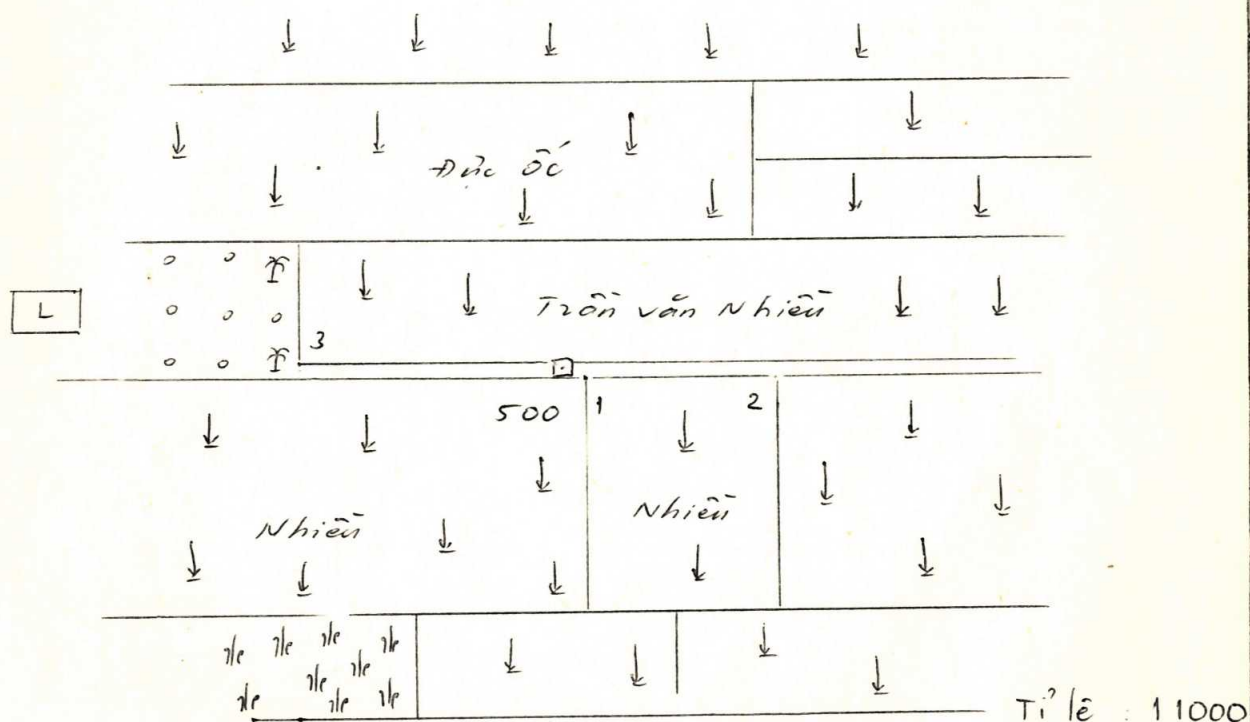 Đức ốc
L
Trần văn Nhiều
3
500
1
2
Nhiều
Nhiều
Tỉ lệ : 1 1000